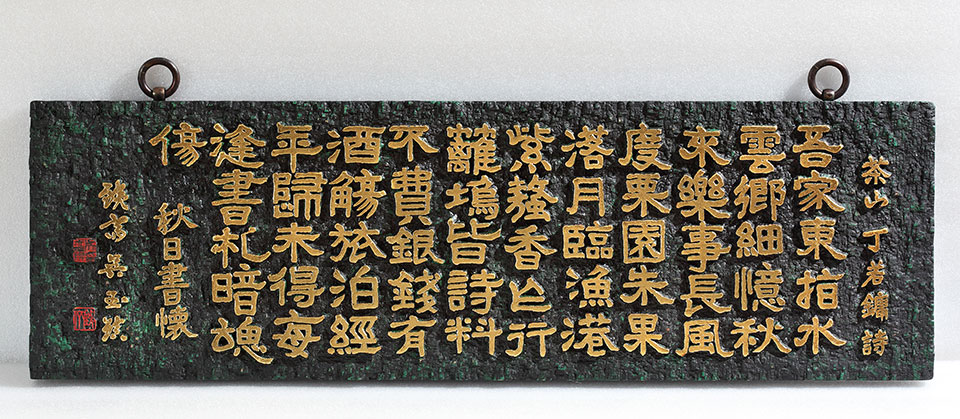 茶山 丁若鏞 詩
吾家東指水
雲鄉細憶秋
來樂事長風
度栗園朱果
落月臨漁港
紫螯香乍行
籬塢皆詩料
不費銀錢有
酒觴旅泊經
年歸未得每
逢書札暗魂
傷
秋日書懷
鐵齋 吳玉鎭